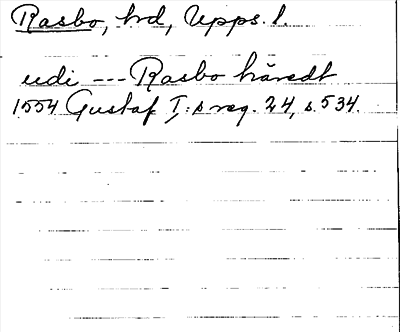 Rasbo, hd, Upps. l.
udi --- Rasbo häredt
1554 Gustaf I:s reg. 24, s. 534.